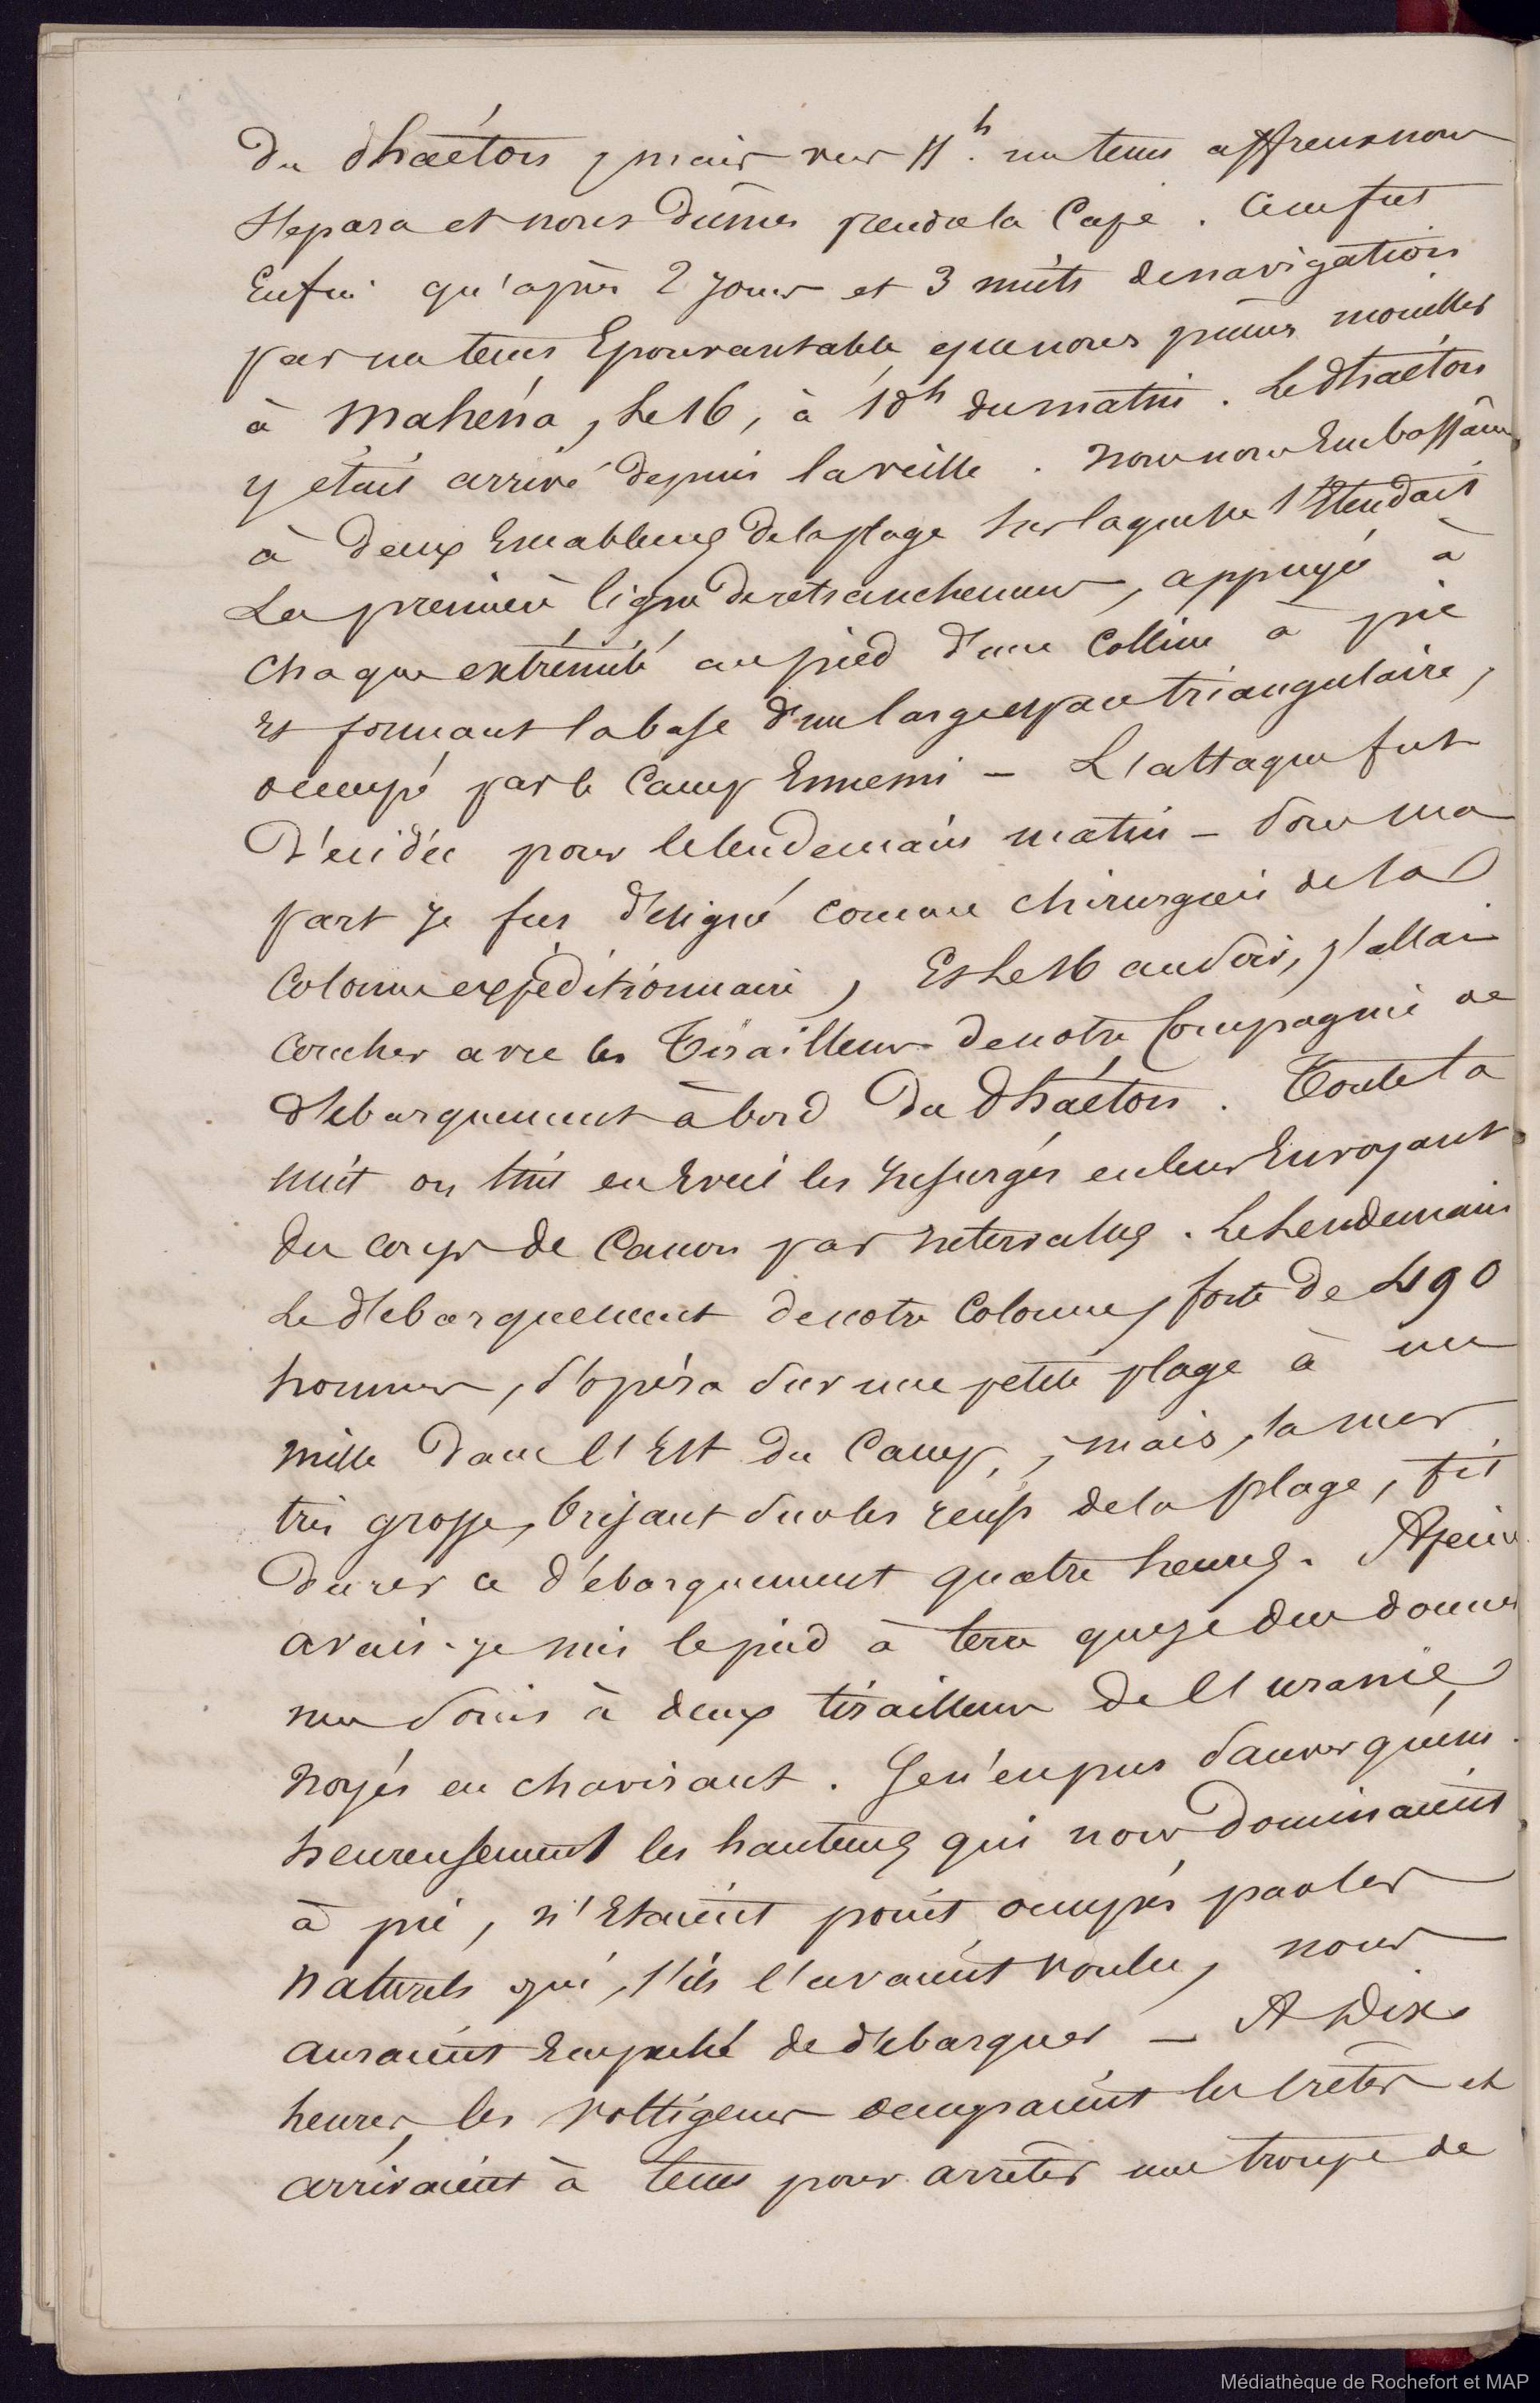 du Phaéton, mais vers 11h. un tems affreux nous
sépara et nous dûmes prendre la Cape. Ce ne fut
Enfin qu'après 2 jours et 3 nuits de navigation
par un tems Epouvantable, que nous pûmes mouiller
à Mahéna, Le 16, à 10h du matin. Le Phaéton
y était arrivé depuis la veille. Nous nous Embossâmes
à deux Encablures de la plage sur laquelle s'Etendait
La première ligne de retranchemens, appuyée à
chaque extrémité au pied d'une Colline à pic
Et formant la base d'un large espace triangulaire,
occupé par le Camp Ennemi – L'attaque fut
décidée pour le lendemain matin – Pour ma
part je fus désigné comme chirurgien de la
Colonne expéditionnaire, Et Le 16 au soir, j'allai
Coucher avec les Tirailleurs de notre Compagnie de
débarquement à bord du Phaéton. Toute la
nuit on tint en Eveil les Insurgés en leur Envoyant
des coups de Canon par Intervalles. Le Lendemain
Le débarquement de notre Colonne, forte de 490
hommes, s'opéra sur une petite plage à un
mille dans l'Est du Camp, ; mais, la mer
très grosse, brisant sur les récifs de la plage, fit
durer ce débarquement quatre heures. A peine
avais-je mis le pied à terre que je dus donner
mes soins à deux tirailleurs de l'Uranie
noyés en chavirant. Je n'en pus sauver qu'un.
heureusement les hauteurs qui nous dominaient
à pic, n'Etaient point occupés par les
naturels qui, s'ils l'avaient voulu, nous
auraient Empêché de débarquer – A Dix
heures, les voltigeurs occupaient les crêtes et
arrivaient à tems pour arrêter une troupe de
Médiathèque de Rochefort et MAP